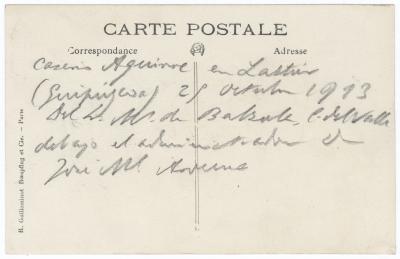 CARTE POSTALE
Correspondance Adresse
Caserio Aguirre en Lastur
(Guipuzcoa) 25 Octubre 1913
Del D. M. de Balzola, C. del Valle
debajo el administrador de
José Mª
R. Guilleminot Bœspflug et Cie. - Paris